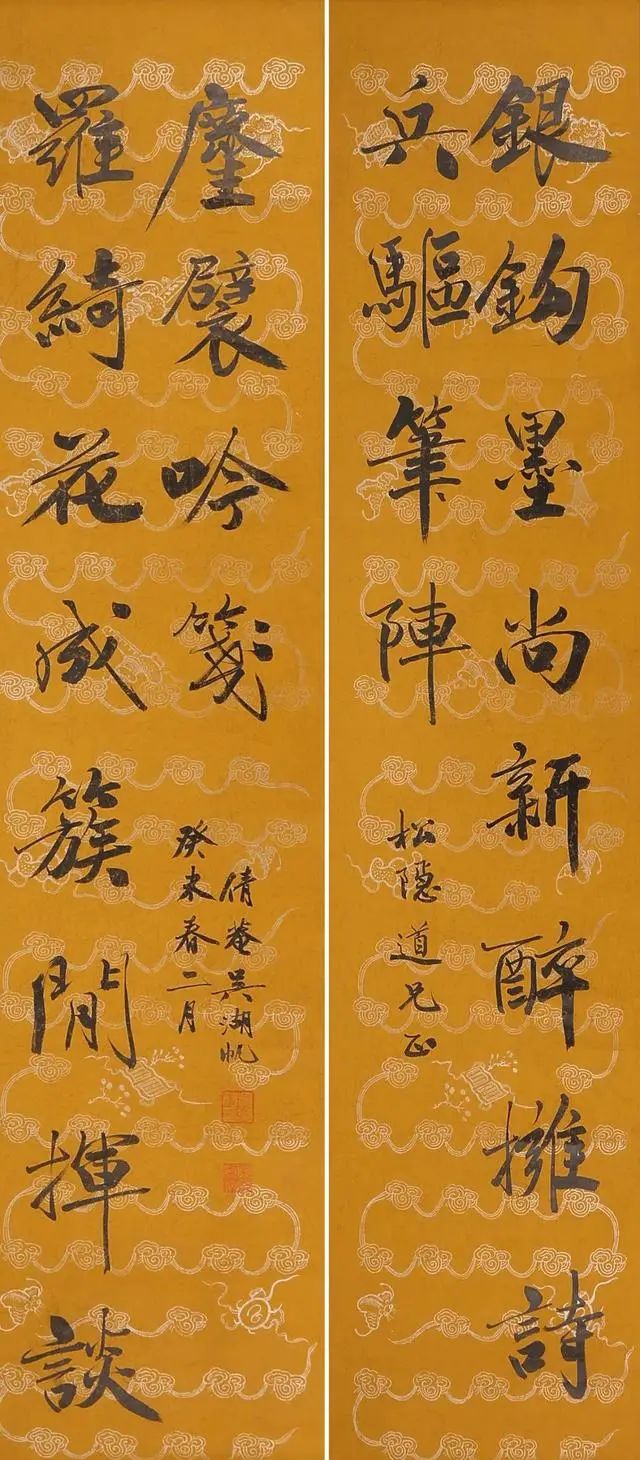 銀鈎墨尚新醉擁詩
兵驅筆陣
松隱道兄正
羅綺花成簇閒揮談
麈襞吟箋
癸未春二月
倩菴吳湖帆